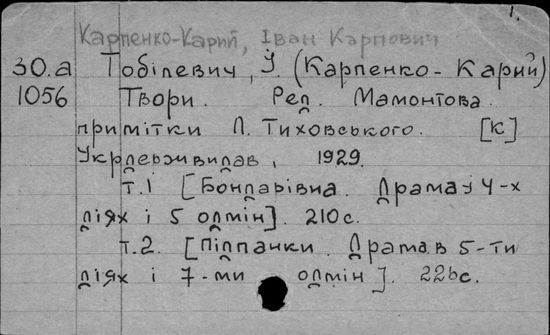 1.
Карпенко-Карий, Іван Карпович
30.а Тобілевич, І. (Карпенко-Карий)
1056 Твори. Ред. Мамонтова.
примітки П. Тиховського. [К]
Укрдержвидав, 1929.
т.1 [Бондарівна. Драма у 4-х
діях і 5 одмін]. 210 с.
т.2. [Підпанки. Драма в 5-ти
діях і 7-ми одмін]. 226с.